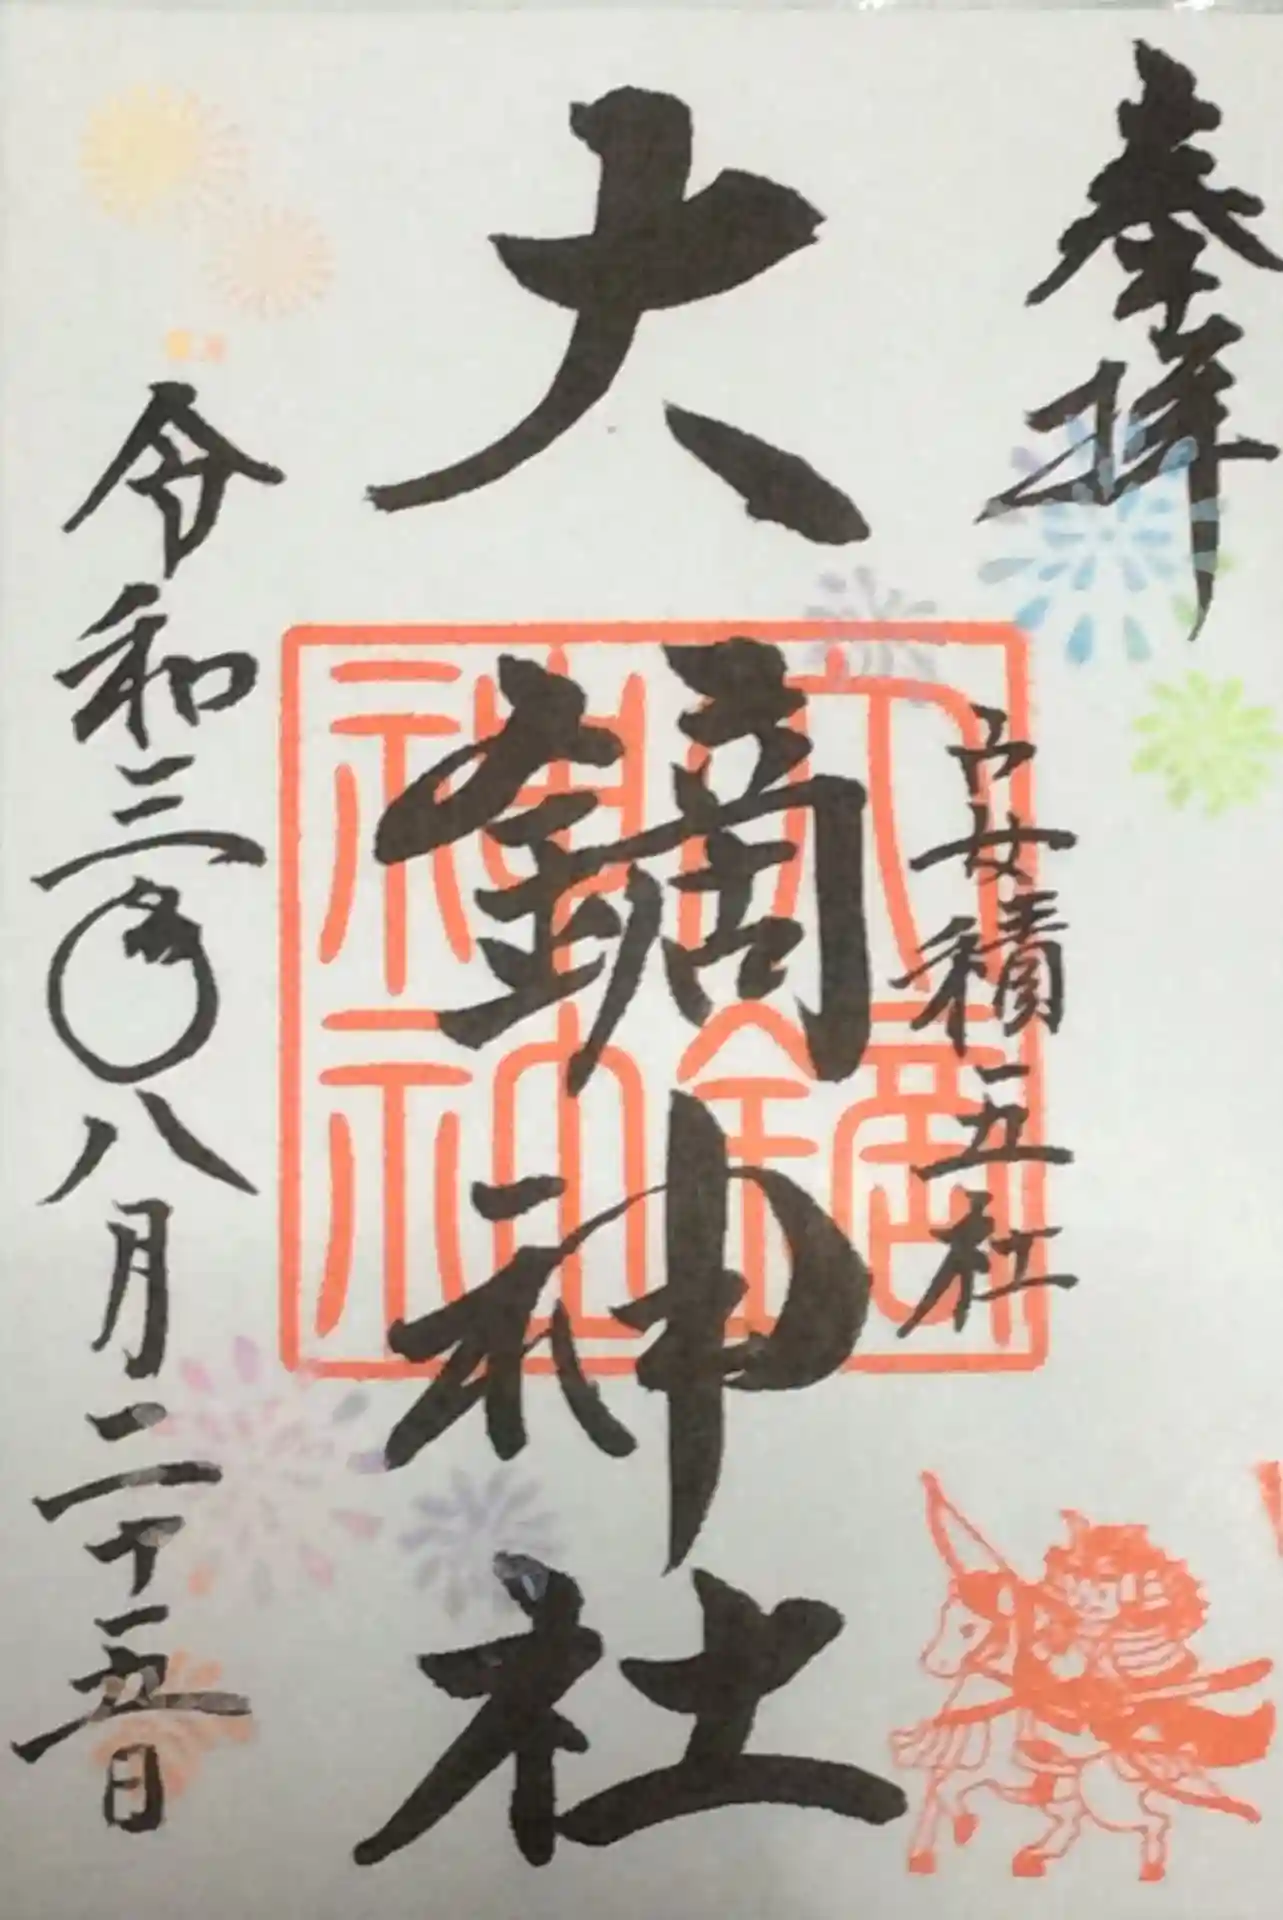 奉拝
安積三五社
大鏑神社
大鏑神社
令和三年八月二十五日